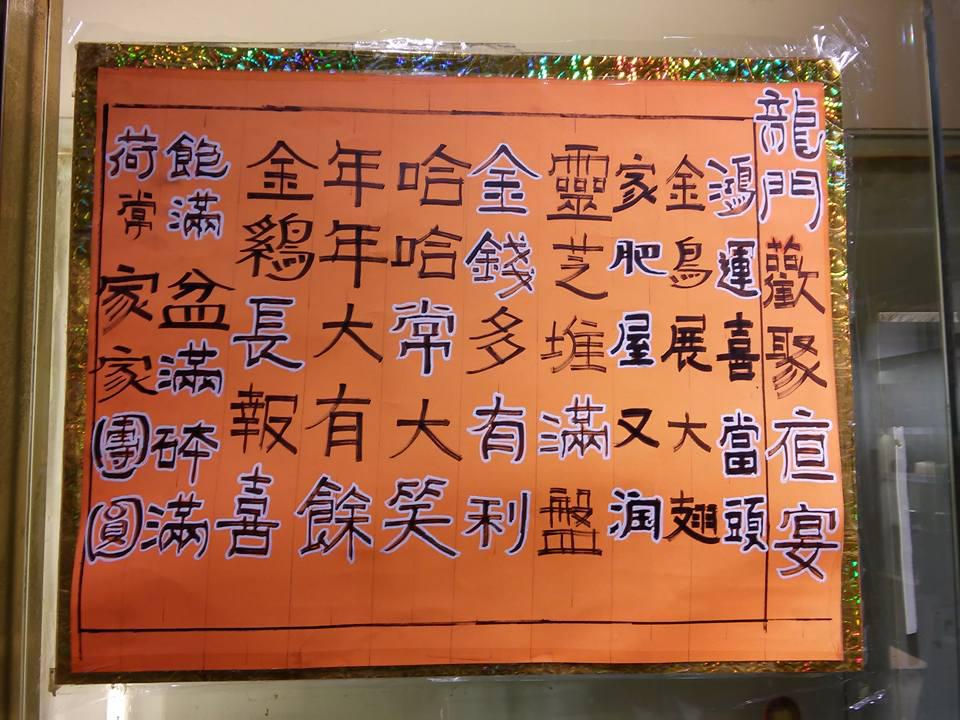 龍門歡聚亱宴
鴻運喜當頭
金鳥展大翅
家肥屋又润
靈芝堆滿盤
金錢多有利
哈哈常大笑
年年大有餘
金鷄長報喜
飽滿盆滿砵滿
荷常家家團圓